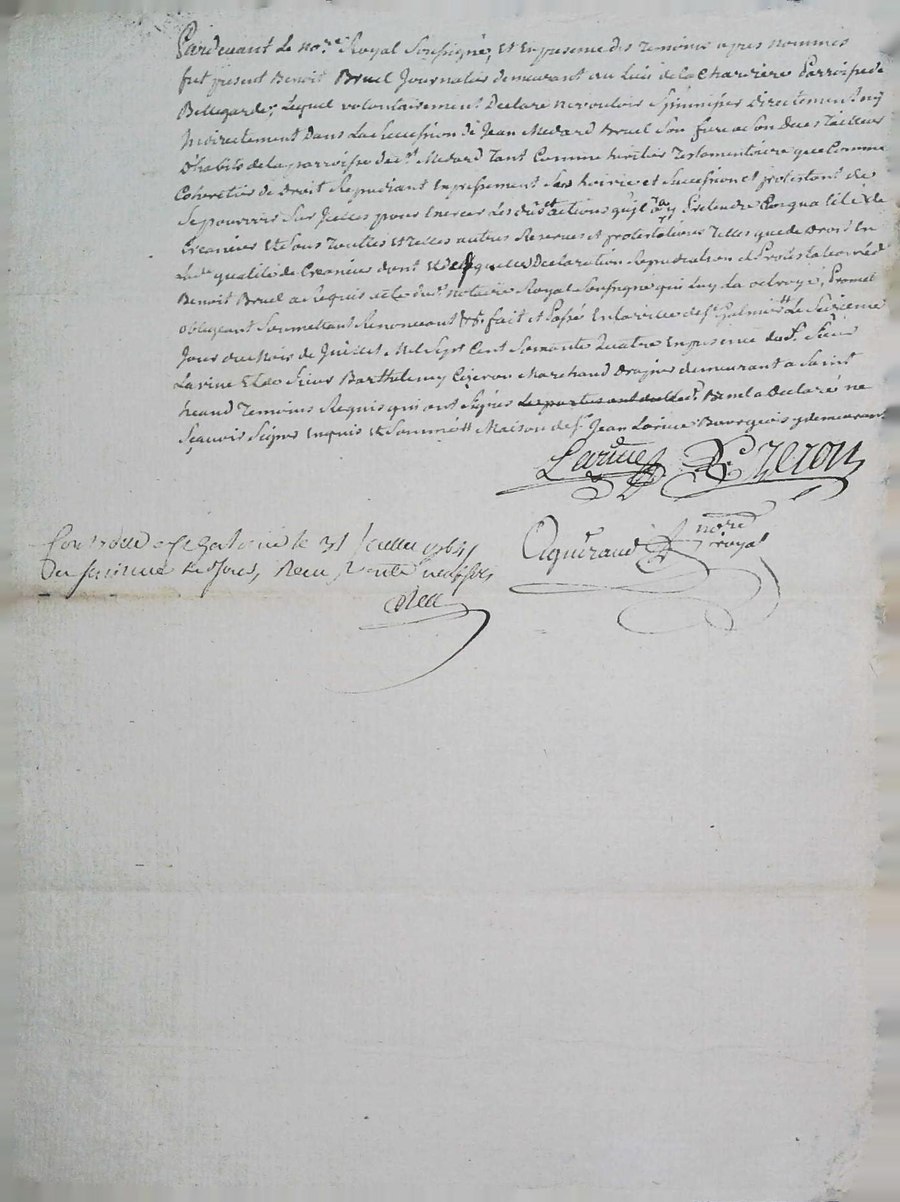 Pardevant Le no.re Royal Soussigné, Et En presence des Temoins apres nommés
fut present Benoit Bruel Journalier demeurant au Lieu de la Charriere Parroisse de
Bellegarde, Lequel volontairement Declare ne vouloir S'immisser directement ny
Indirectement Dans La Succession de Jean Medard Bruel Son frere a son deces Tailleur
D'habits de la parroisse de St. Medard Tant Comme heritier Testamentaire que Comme
Coheretier de Droit Repudiant Expressement Son hoirie et Succession et protestant de
Se pourvoir Sur Icelles pour Exercer Les droits et actions qu'il a a y Pretendre En qualité de
Creancier Et Sous Touttes Et Telles autres Reserves et protestations Telles que de Droit En
qualité de Creancier dont Et de Declaration Repudiation et Protestation
Benoit Bruel a Requis acte du notaire Royal Soussigné qui Luy La octroyé, Promet
obligeant Soumettant Renonceant &c. fait et Passé En la ville de St. Galmier Le Seizieme
Jour du Mois de Juillet Mil Sept Cent Soixante Quatre En presence du Sr.
Larine Et de Sieur Barthelemy Cizeron Marchand demeurant a Saint
heand Temoins Requis qui ont Signés Bruel a Declaré ne
Sçavoir Signer Enquis et Sommé Maison de Sr. Jean Larine Bourgeois y demeurant
Larine Cizeron
no.re
royal
Controllé a St Galmier le 31 Juillet 1764